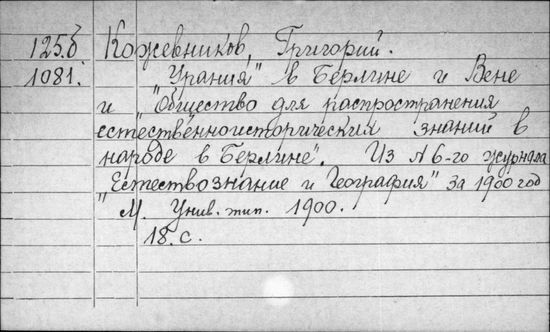 125.б Кожевников, Григорий.
1081. "Урания" в Берлине и Вене
и "Общество для распространения
естественноисторических знаний в
народе в Берлине". Из № 6-го журнала
"Естествознание и География" за 1900 год
М. Унив. тип. 1900.
18. с.